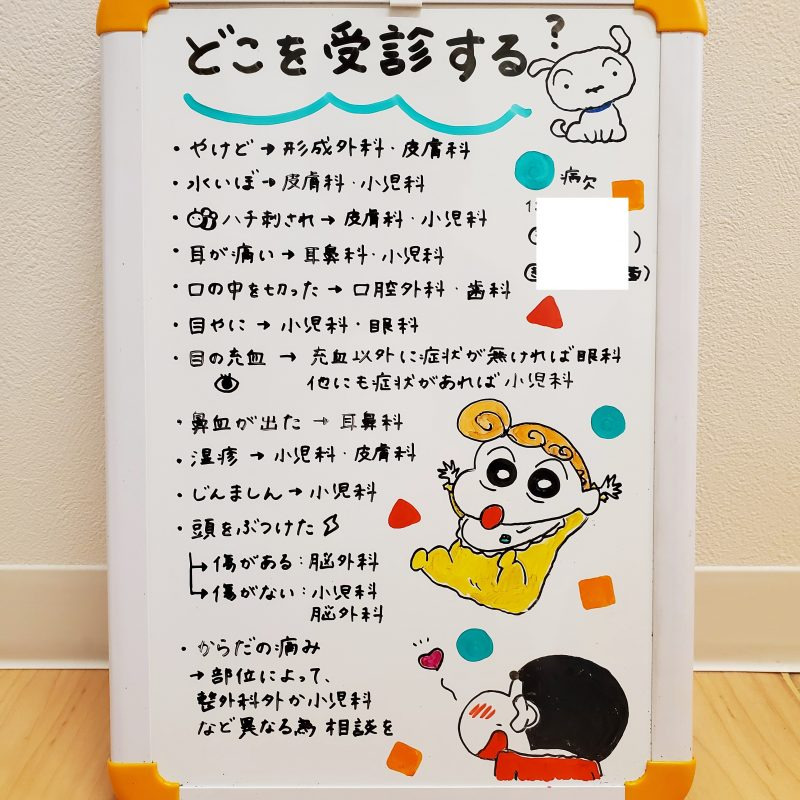 どこを受診する?
・やけど→形成外科・皮膚科
・水いぼ→皮膚科・小児科
・ハチ刺され→皮膚科・小児科
・耳が痛い→耳鼻科・小児科
・口の中を切った→口腔外科・歯科
・目やに→小児科・眼科
・目の充血→充血以外に症状が無ければ眼科
他にも症状があれば小児科
・鼻血が出た→耳鼻科
・湿疹→小児科・皮膚科
・じんましん→小児科
・頭をぶつけた
→傷がある:脳外科
→傷がない:小児科
脳外科
・からだの痛み
→部位によって、
整外科外か小児科
など異なる為相談を
病欠